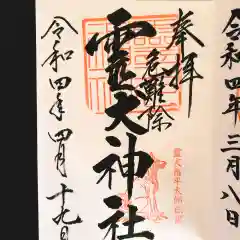 奉拝
厄難除
靈犬神社
令和四年四月十九日
令和四年三月八日